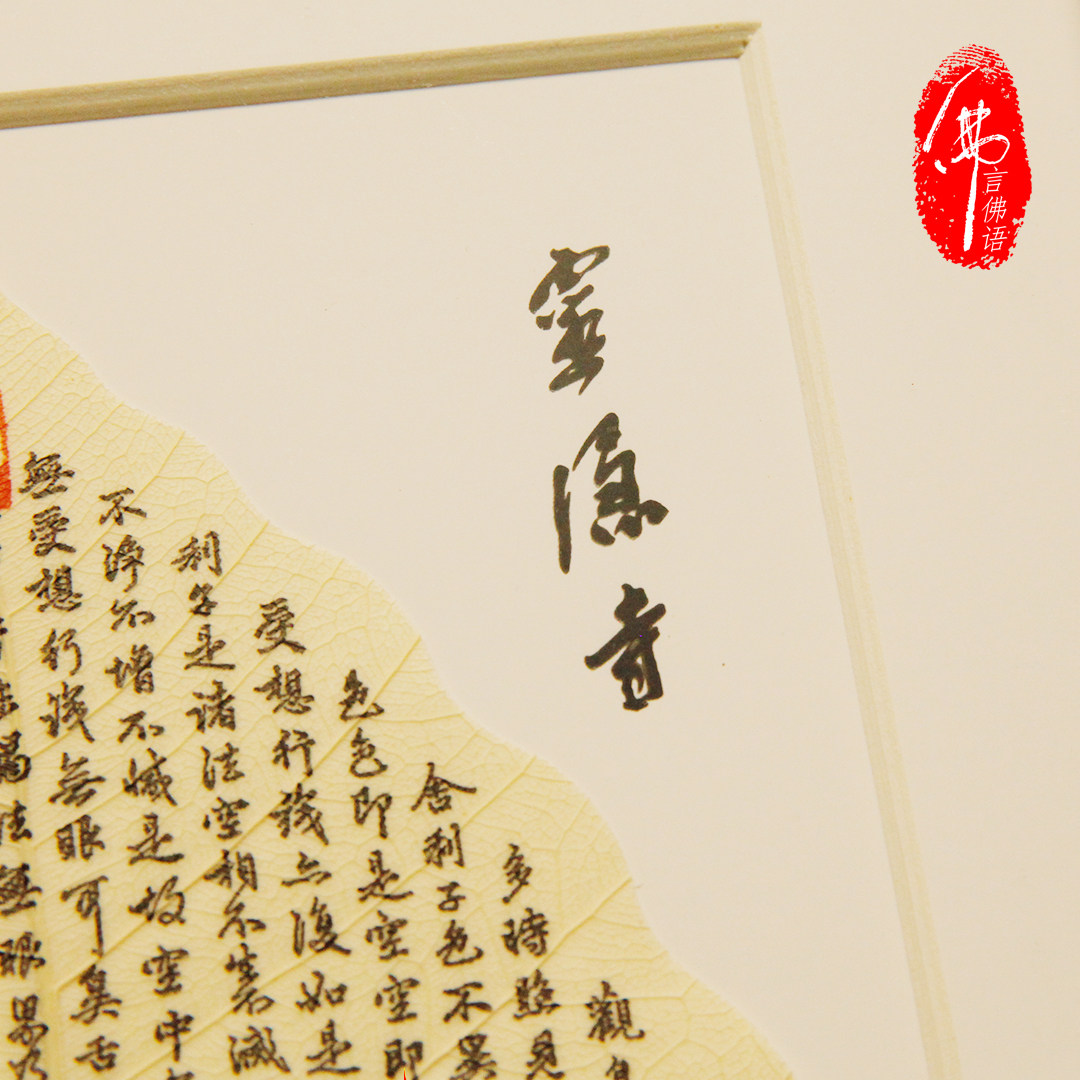 佛
言佛语
靈隱寺
觀自
多時照見
舍利子色不異
色色即是空空即
受想行識亦復如是
利子是諸法空相不生不滅
不淨不增不減是故空中
無受想行識無眼耳鼻舌
無眼界乃